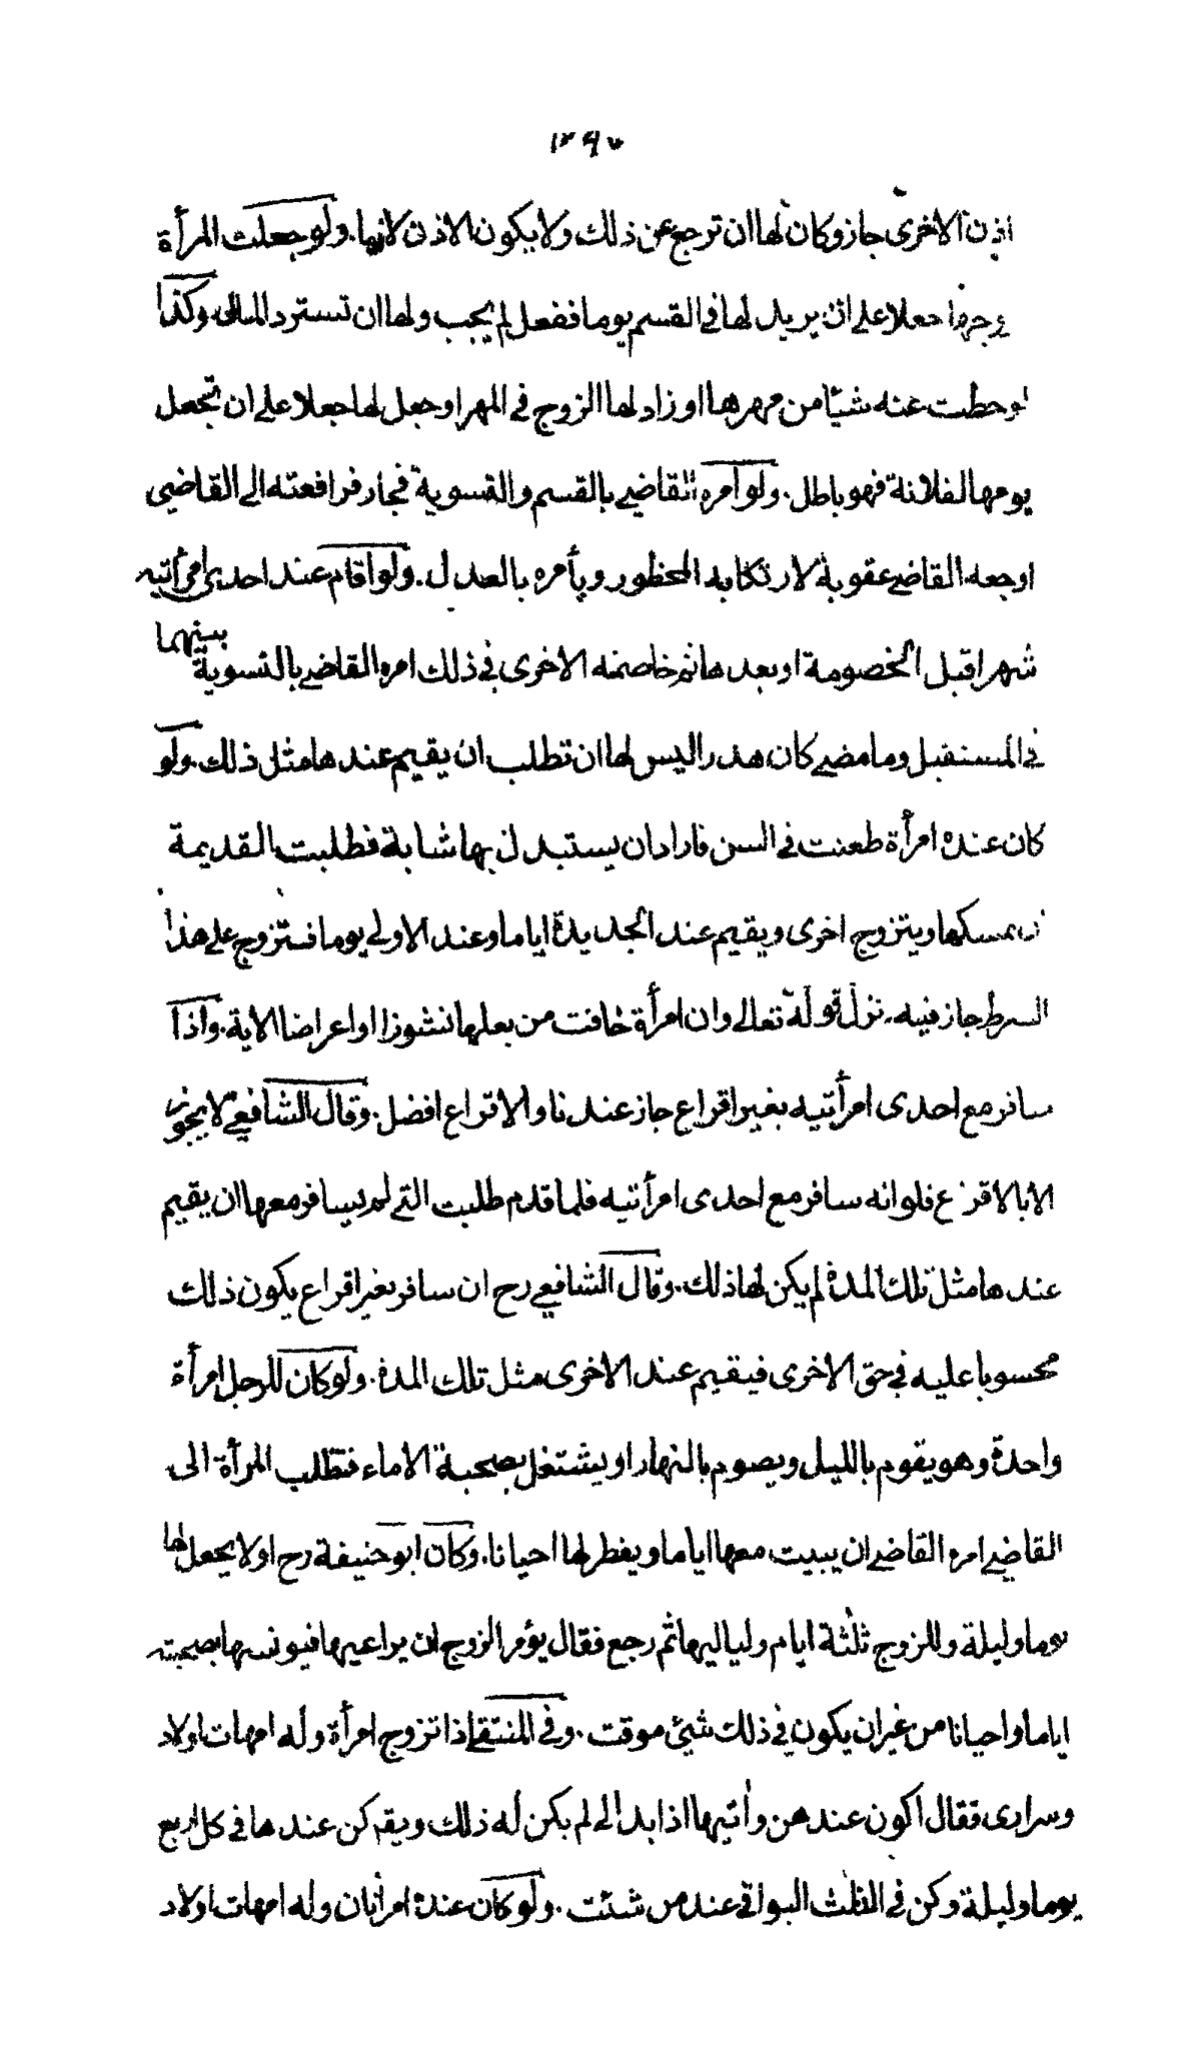 اذن الاخرى جاز وكان لها ان ترجع عن ذلك ولا يكون الاذن لازما. ولو جعلت المرأة
زوجها جعلا على ان يزيد لها في القسم يوما ففعل لم يجب ولها ان تسترد المال. وكذا
لو حطت عنه شيئا من مهرها او زاد لها الزوج في المهر او جعل لها جعلا على ان تجعل
يومها لفلانة فهو باطل. ولو امره القاضي بالقسم والتسوية فجار فرافعته الى القاضي
اوجعه القاضي عقوبة لارتكابه المحظور ويأمره بالعدل. ولو اقام عند احدى امرأتيه
شهرا قبل الخصومة او بعدها ثم خاصمته الاخرى في ذلك امره القاضي بالتسوية بينهما
في المستقبل وما مضى كان هدرا ليس لها ان تطلب ان يقيم عندها مثل ذلك. ولو
كان عنده امرأة طعنت في السن فاراد ان يستبدل بها شابة فطلبت القديمة
ان يمسكها ويتزوج اخرى ويقيم عند الجديدة اياما وعند الاولى يوما فتزوج على هذا
الشرط جاز فيه نزل قوله تعالى وان امرأة خافت من بعلها نشوزا او اعراضا الاية. واذا
سافر مع احدى امرأتيه بغير اقراع جاز عندنا والاقراع افضل. وقال الشافعي لا يجوز
الا بالاقراع فلو انه سافر مع احدى امرأتيه فلما قدم طلبت التي لم يسافر معها ان يقيم
عندها مثل تلك المدة لم يكن لها ذلك. وقال الشافعي رح ان سافر بغير اقراع يكون ذلك
محسوبا عليه في حق الاخرى فيقيم عند الاخرى مثل تلك المدة. ولو كان للرجل امرأة
واحدة وهو يقوم بالليل ويصوم بالنهار او يشتغل بصحبة الاماء فتظلمت المرأة الى
القاضي امره القاضي ان يبيت معها اياما ويفطر لها احيانا. وكان ابو حنيفة رح اولا يجعل لها
يوما وليلة وللزوج ثلثة ايام ولياليها ثم رجع فقال يؤمر الزوج ان يراعيها فيونسها بصحبته
اياما واحيانا من غير ان يكون في ذلك شيئ موقت. وفي المنتقى اذا تزوج امرأة وله امهات اولاد
وسرارى فقال اكون عندهن وأتيها اذا بدا لي لم يكن له ذلك ويقم كن عندها في كل اربع
يوما وليلة وكن في الثلث البواقي عند من شئت. ولو كان عنده امرأتان وله امهات اولاد